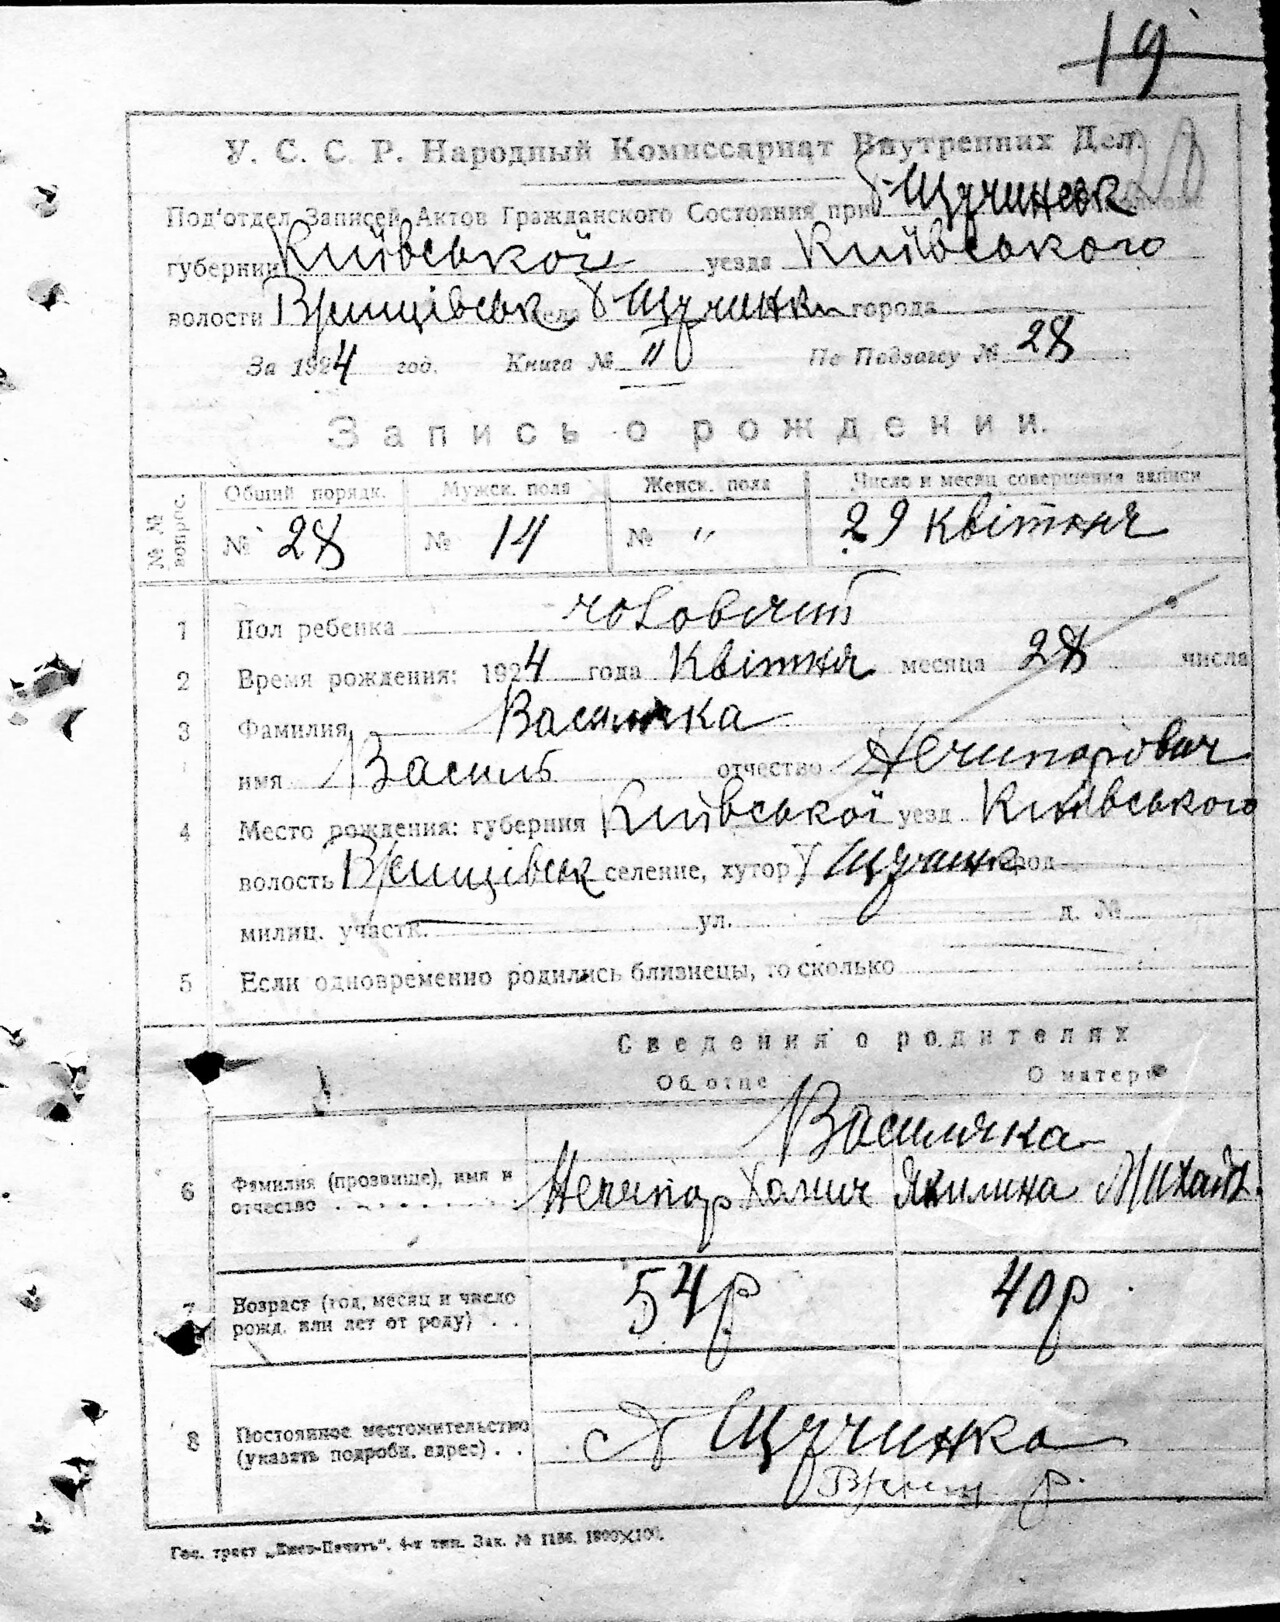 19
28
У. С. С. Р. Народный Комиссариат Внутренних Дел.
Под'отдел Записей Актов Гражданского Состояния при Щучинськ
губернии Київської уезда Київського
волости села Щучинки города
За 1924 год. Книга № " По Подзагсу № 28
Запись о рождении.
№ № вопрос. Общий порядк. Мужск. пола Женск. пола Число и месяц совершения записи
№ 28 № 14 № " 29 квітня
1 Пол ребенка чоловічий
2 Время рождения: 1924 года Квітня месяца 28 числа
3 Фамилия Василяка
имя Василь отчество Нечипорович
4 Место рождения: губерния Київської уезд Київського
волость селение, хутор Щучинк город
милиц. участк. ул. д. №
5 Если одновременно родились близнецы, то сколько
Сведения о родителях
Об отце О матери
Василяка
6 Фамилия (прозвище), имя и отчество Нечипор Якилина Михайл.
7 Возраст (год, месяц и число рожд. или лет от роду) 54 р 40 р
8 Постоянное местожительство (указать подробн. адрес) Щучинка
р.
Гос. трест „Киев-Печать". 4-я тип. Зак. № 1156. 1800×100.